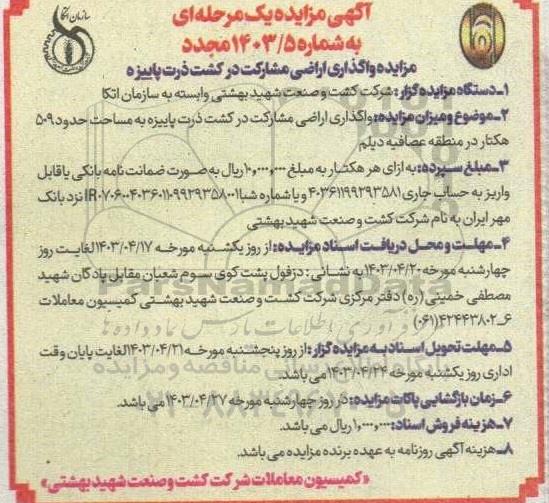 آگهی مزایده یک مرحله‌ای
به شماره ۱۴۰۳/۵ مجدد
سازمان اتکا
مزایده واگذاری اراضی مشارکت در کشت ذرت پاییزه
۱ـ دستگاه مزایده گزار: شرکت کشت و صنعت شهید بهشتی وابسته به سازمان اتکا
۲ـ موضوع و میزان مزایده: واگذاری اراضی مشارکت در کشت ذرت پاییزه به مساحت حدود ۵۰۹
هکتار در منطقه عصافیه دیلم
۳ـ مبلغ سپرده: به ازای هر هکتار به مبلغ ۱۰,۰۰۰,۰۰۰ ریال به صورت ضمانت نامه بانکی یا قابل
واریز به حساب جاری ۴۰۳۶۱۱۹۹۲۹۳۵۸۱ و یا شماره شبا IR۰۷۰۶۰۰۴۰۳۶۰۱۱۰۹۹۲۹۳۵۸۰۰۱ نزد بانک
مهر ایران به نام شرکت کشت و صنعت شهید بهشتی
۴ـ مهلت و محل دریافت اسناد مزایده: از روز یکشنبه مورخه ۱۴۰۳/۰۴/۱۷ لغایت روز
چهارشنبه مورخه ۱۴۰۳/۰۴/۲۰ به نشانی: دزفول پشت کوی سوم شعبان مقابل پادگان شهید
مصطفی خمینی (ره) دفتر مرکزی شرکت کشت و صنعت شهید بهشتی کمیسیون معاملات
۶ـ۴۲۴۴۳۸۰۲(۰۶۱)
۵ـ مهلت تحویل اسناد به مزایده گزار: از روز پنجشنبه مورخه ۱۴۰۳/۰۴/۲۱ لغایت پایان وقت
اداری روز یکشنبه مورخه ۱۴۰۳/۰۴/۲۴ می باشد.
۶ـ زمان بازگشایی پاکات مزایده: در روز چهارشنبه مورخه ۱۴۰۳/۰۴/۲۷ می باشد.
۷ـ هزینه فروش اسناد: ۱,۰۰۰,۰۰۰ ریال می باشد.
۸ـ هزینه آگهی روزنامه به عهده برنده مزایده می باشد.
«کمیسیون معاملات شرکت کشت و صنعت شهید بهشتی»
ParsNamadData